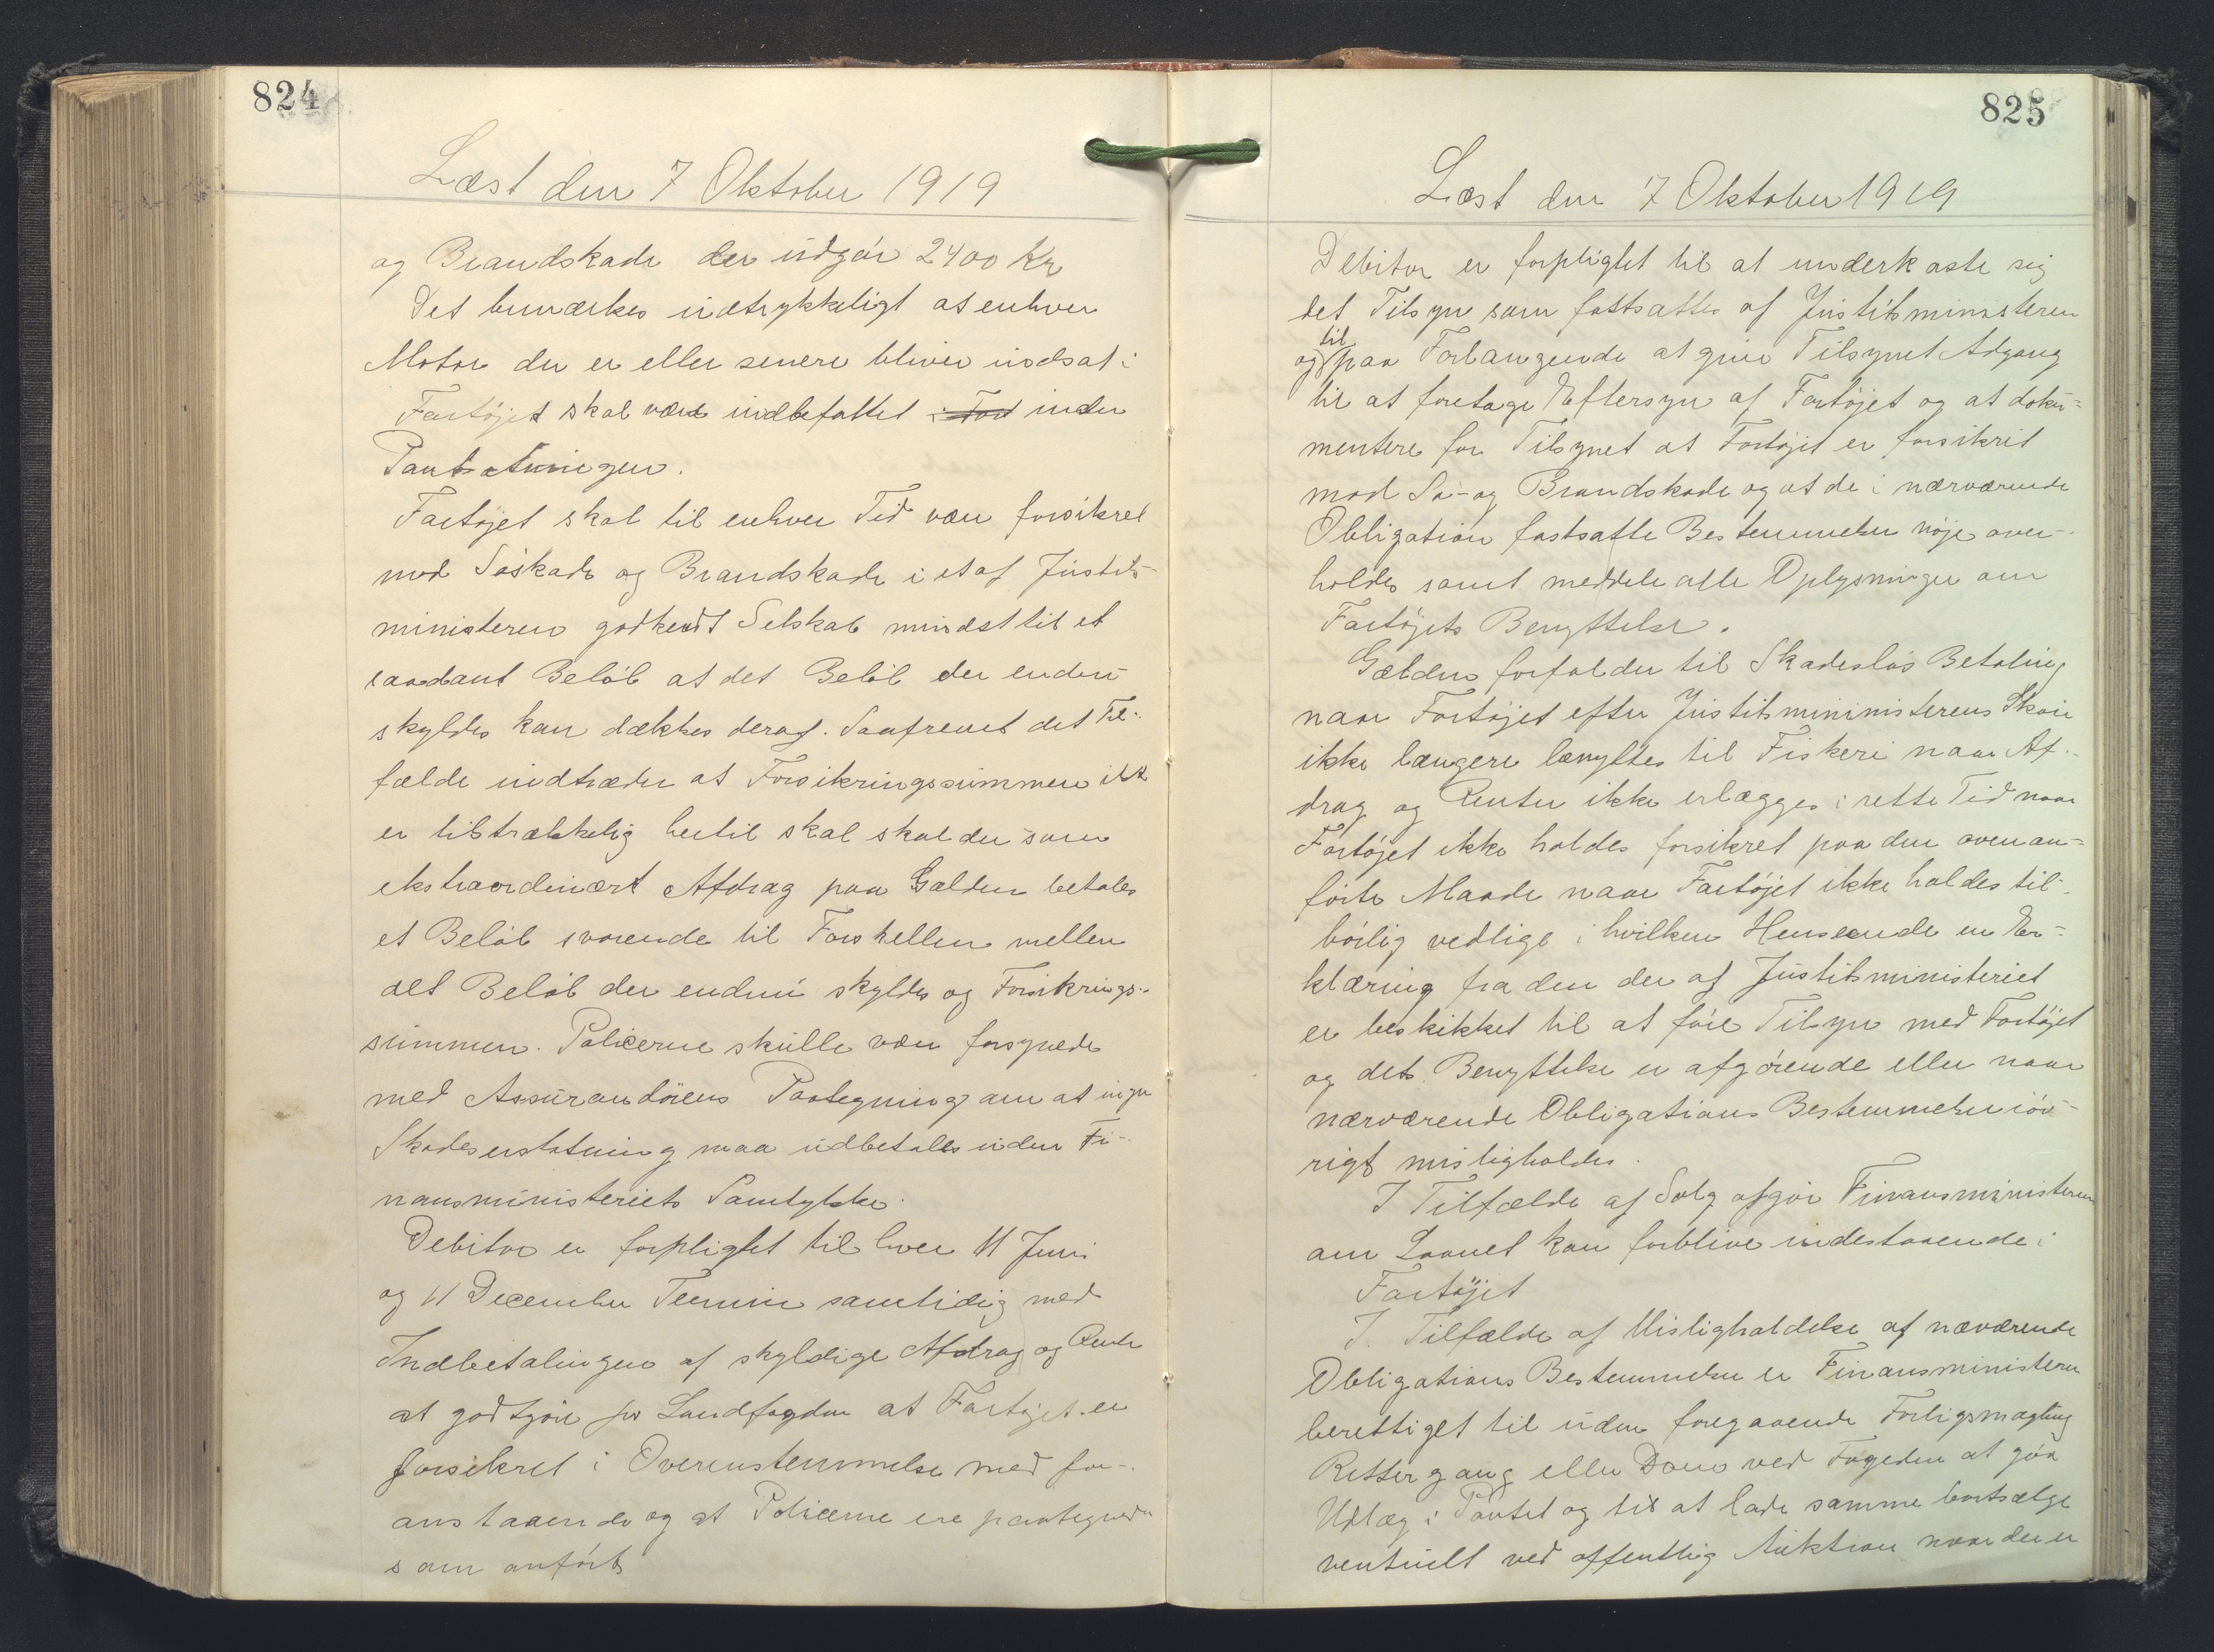 824
Læst den 7 Oktober 1919
og Brandskade der udgør 2400 Kr
Det bemærkes udtrykkeligt at enhver
Motor der er eller senere bliver indsat i
Fartøjet skal være indbefattet i Fart under
Pantsætningen.
Fartøjet skal til enhver Tid være forsikret
mod Søskade og Brandskade i et af Justits-
ministeren godkendt Selskab mindst til et
saadant Beløb at det Beløb der endnu
skyldes kan dækkes deraf. Saafremt det Til-
fælde indtræder at Forsikringssummen ikke
er tilstrækkelig hertil skal skal der som
ekstraordinært Afdrag paa Gælden betales
et Beløb svarende til Forskellen mellem
det Beløb der endnu skyldes og Forsikrings-
summen. Policerne skulle være forsynede
med Assurandørens Paategning om at ingen
Skadeserstatning maa udbetales uden Fi-
nansministeriets Samtykke.
Debitor er forpligtet til hver 11 Juni
og 11 December Termin samtidig med
Indbetalingen af skyldige Afdrag og Rente
at godtgøre for Landfogden at Fartøjet er
forsikret i Overensstemmelse med for-
anstaaende og at Policerne ere paategnede
som anført
825
Læst den 7 Oktober 1919
Debitor er forpligtet til at underkaste sig
det Tilsyn som fastsattes af Justitsministeren
til
og paa Forlangende at give Tilsynet Adgang
til at foretage Eftersyn af Fartøjet og at doku-
mentere for Tilsynet at Fartøjet er forsikret
mod Sø- og Brandskade og at de i nærværende
Obligation fastsatte Bestemmelser nøje over-
holdes samt meddele alle Oplysninger om
Fartøjets Benyttelse.
Gælden forfalder til Skadesløs Betaling
naar Fartøjet efter Justitsmininisterens Skøn
ikke længere benyttes til Fiskeri naar Af-
drag og Renter ikke erlægges i rette Tid naar
Fartøjet ikke holdes forsikret paa den ovenan-
førte Maade naar Fartøjet ikke holdes til-
børlig vedlige i hvilken Henseende en Er-
klæring fra den der af Justitsministeriet
er beskikket til at føre Tilsyn med Fartøjet
og dets Benyttelse er afgørende eller naar
nærværende Obligations Bestemmelser iøv-
rigt misligholdes.
I Tilfælde af Salg afgør Finansministeren
om Laanet kan forblive indestaaende i
Fartøjet
I. Tilfælde af Misligholdelse af næværende
Obligations Bestemmelser er Finansministeren
berettiget til uden foregaaende Forligsmægling
Rettergang eller Dom ved Fogeden at gøre
Udlæg i Pantet og til at lade samme bortsælge
ventuelt ved offentlig Auktion naar der er